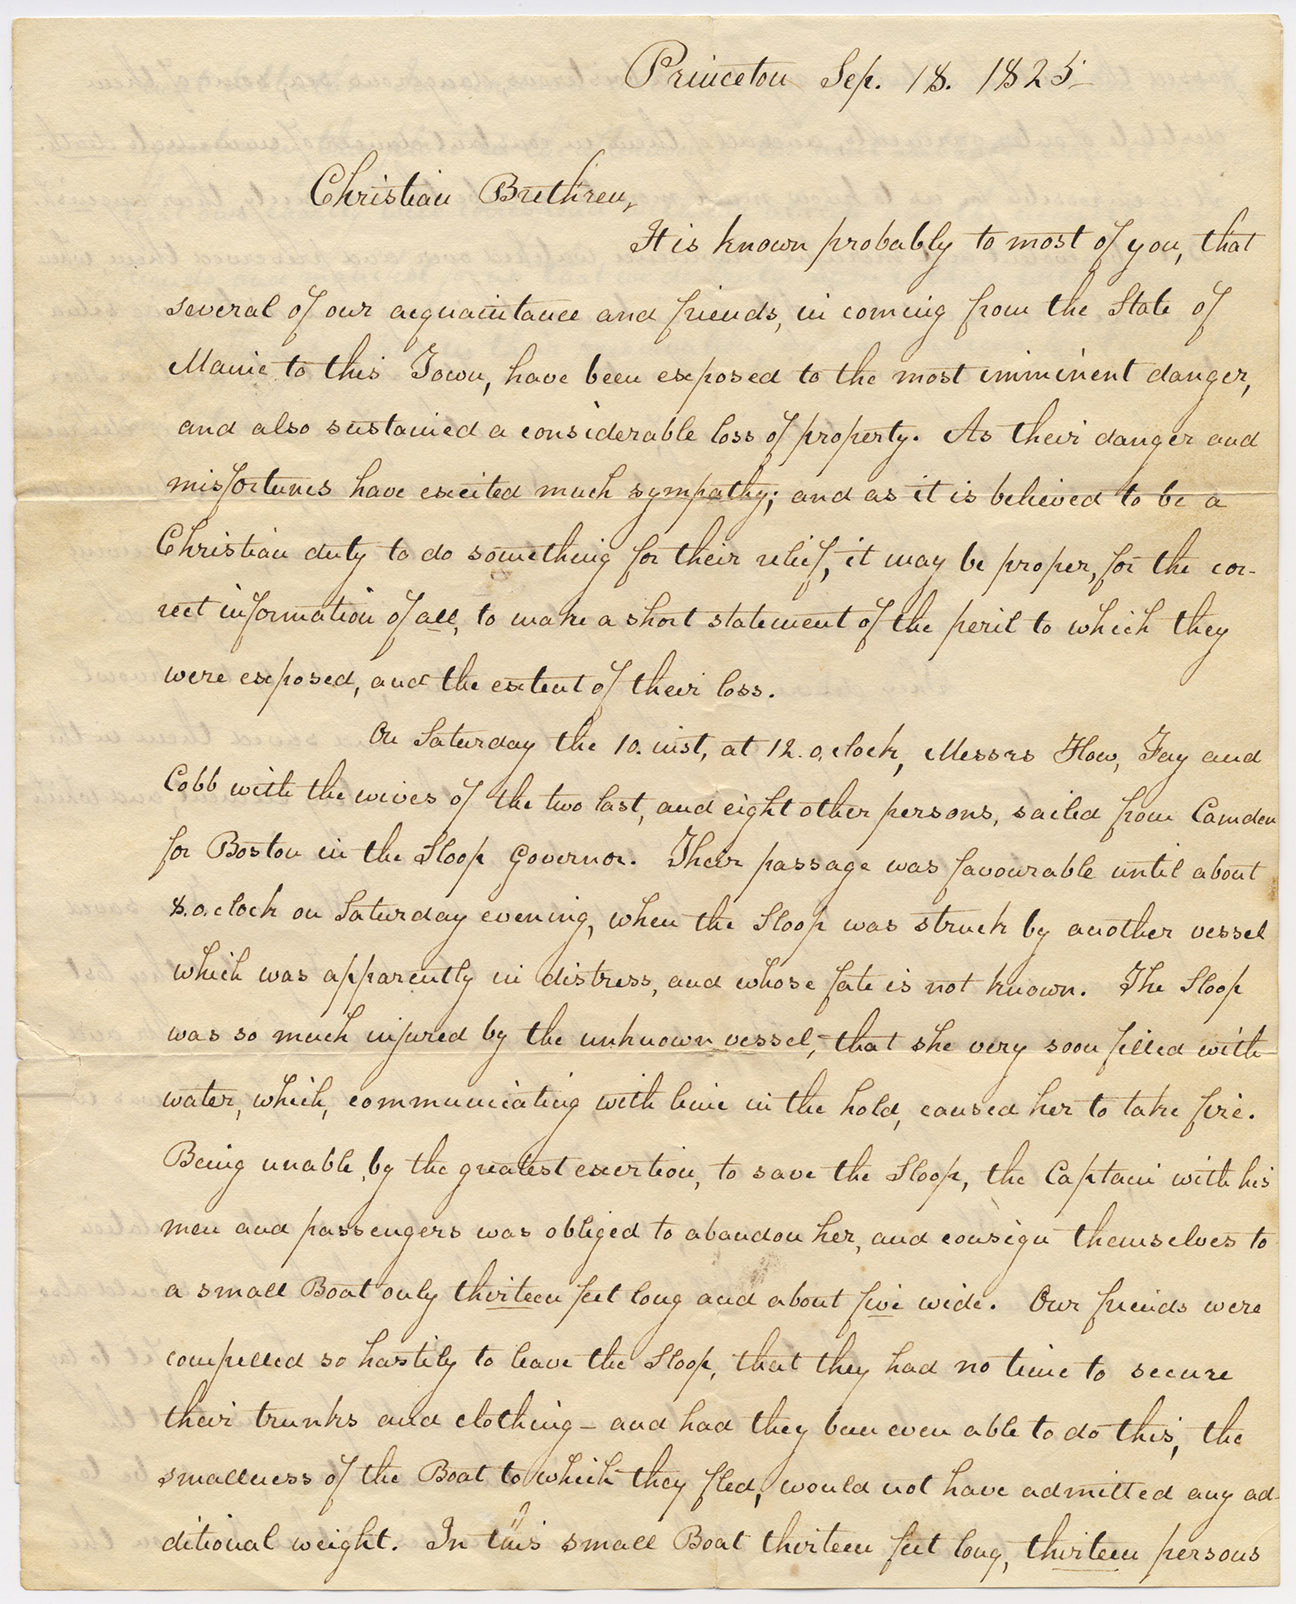 Princeton Sep. 18. 1825
Christian Brethren,
It is known probably to most of you, that
several of our acquaintance and friends, in coming from the State of
Maine to this Town, have been exposed to the most imminent danger,
and also sustained a considerable loss of property. As their danger and
misfortunes have excited much sympathy; and as it is believed to be a
Christian duty to do something for their relief, it may be proper, for the cor-
rect information of all, to make a short statement of the peril to which they
were exposed, and the extent of their loss.
On Saturday the 10. inst, at 12. o,clock, Messrs How, Fay and
Cobb with the wives of the two last, and eight other persons, sailed from Camden
for Boston in the Sloop Governor. Their passage was favourable until about
8. o,clock on Saturday evening, when the Sloop was struck by another vessel
which was apparently in distress, and whose fate is not known. The Sloop
was so much injured by the unknown vessel, that she very soon filled with
water, which, communicating with lime in the hold, caused her to take fire.
Being unable, by the greatest exertion, to save the Sloop, the Captain with his
men and passengers was obliged to abandon her, and consign themselves to
a small Boat only thirteen feet long and about five wide. Our friends were
compelled so hastily to leave the Sloop, that they had no time to secure
their trunks and clothing – and had they been even able to do this, the
smallness of the Boat to which they fled, would not have admitted any ad-
ditional weight. In this small Boat thirteen feet long, thirteen persons